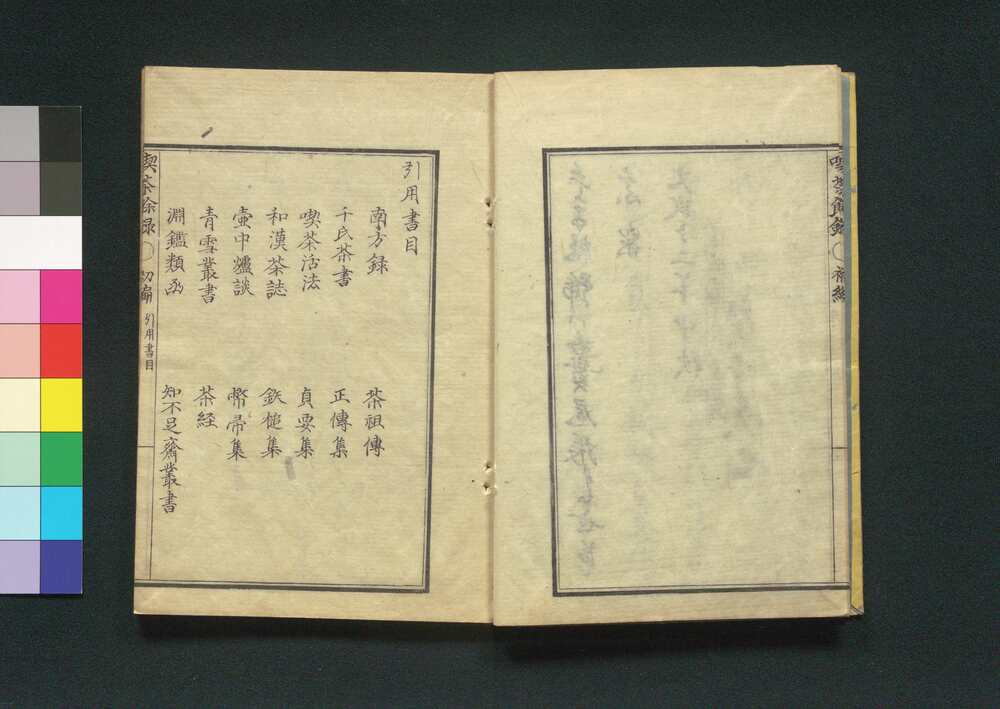 喫茶餘録
引用書目
南方録
茶祖傳
千氏茶書
正傳集
喫茶活法
貞要集
和漢茶誌
鉄槌集
壷中爐談
幣帚集
青雪叢書
茶経
淵鑑類函
知不足齋叢書
喫茶餘録 初編 引用書目